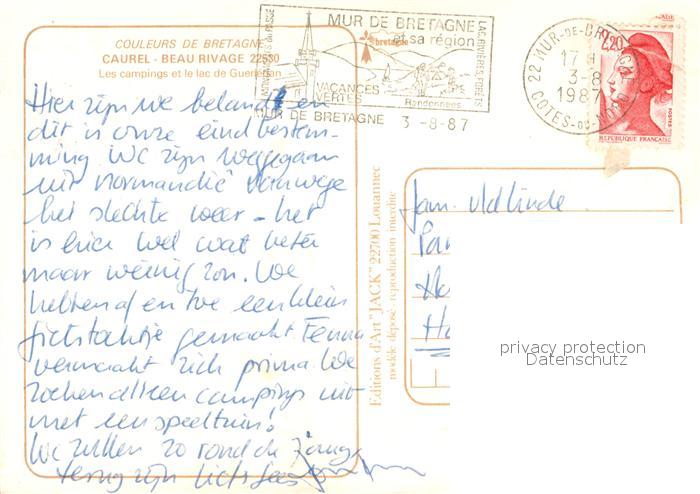 COULEURS DE BRETAGNE
CAUREL - BEAU RIVAGE 22530
Les campings et le lac de Guerlédan
MUR DE BRETAGNE
et sa région
bretagne
LAC, RIVIÈRES, FORÊTS
VACANCES
VERTES
Randonnées
MUR DE BRETAGNE 3-8-87
22 MUR-DE-BRETAGNE
17 H
3-8
1987
COTES-DU-NORD
2,20
REPUBLIQUE FRANCAISE
Hier zijn we beland en
dit is onze eindbestem-
ming We zijn weggegaan
uit Normandië vanwege
het slechte weer - het
is hier wel wat beter
maar weinig zon. We
hebben af en toe een klein
fietstochtje gemaakt Femma
vermaakt zich prima. We
zoeken alleen campings uit
met een speeltuin!
We zullen zo rond de
terug zijn liefs
Editions d'Art "JACK" 22700 Louannec
modèle déposé - reproduction interdite
Fam. v/d Linde
privacy protection
Datenschutz